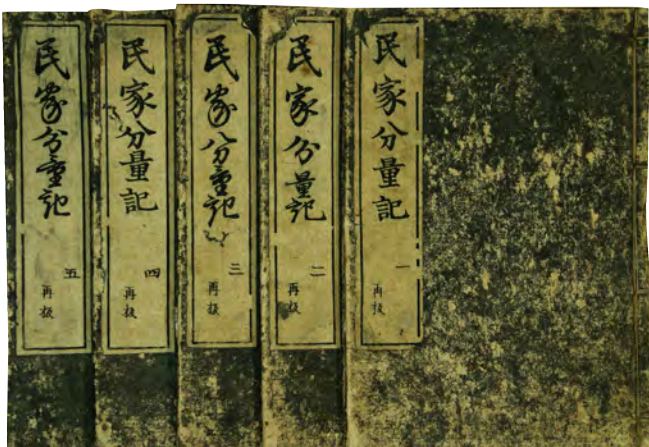 民家分量記
一
再板
民家分量記
二
再板
民家分量記
三
再板
民家分量記
四
再板
民家分量記
五
再板